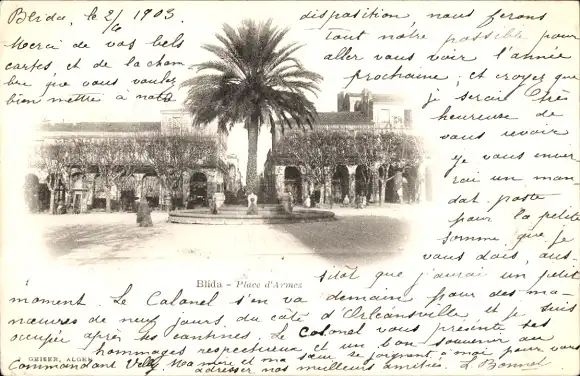 Blida, le 2/6 1903
Merci de vos bels
cartes et de la cham
bre que vous voulez
bien mettre à notre
disposition, nous ferons
tout notre possible pour
aller vous voir l'année
prochaine; et croyez que
je serai très
heureuse de
vous revoir
je vous enver
rai un man
dat poste
pour la petite
somme que je
vous dois, aus-
sitôt que j'aurai un petit
Blida - Place d'Armes
moment. Le Colonel s'en va demain pour des ma-
nœuvres de neuf jours, du côté d'Orléansville, et je suis
occupée après ses cantines. Le Colonel vous présente ses
hommages respectueux et un bon souvenir au
GEISER, ALGER
Commandant. Ma mère et ma sœur se joignent à moi pour vous
adresser nos meilleurs amitiés. L. Bonnel